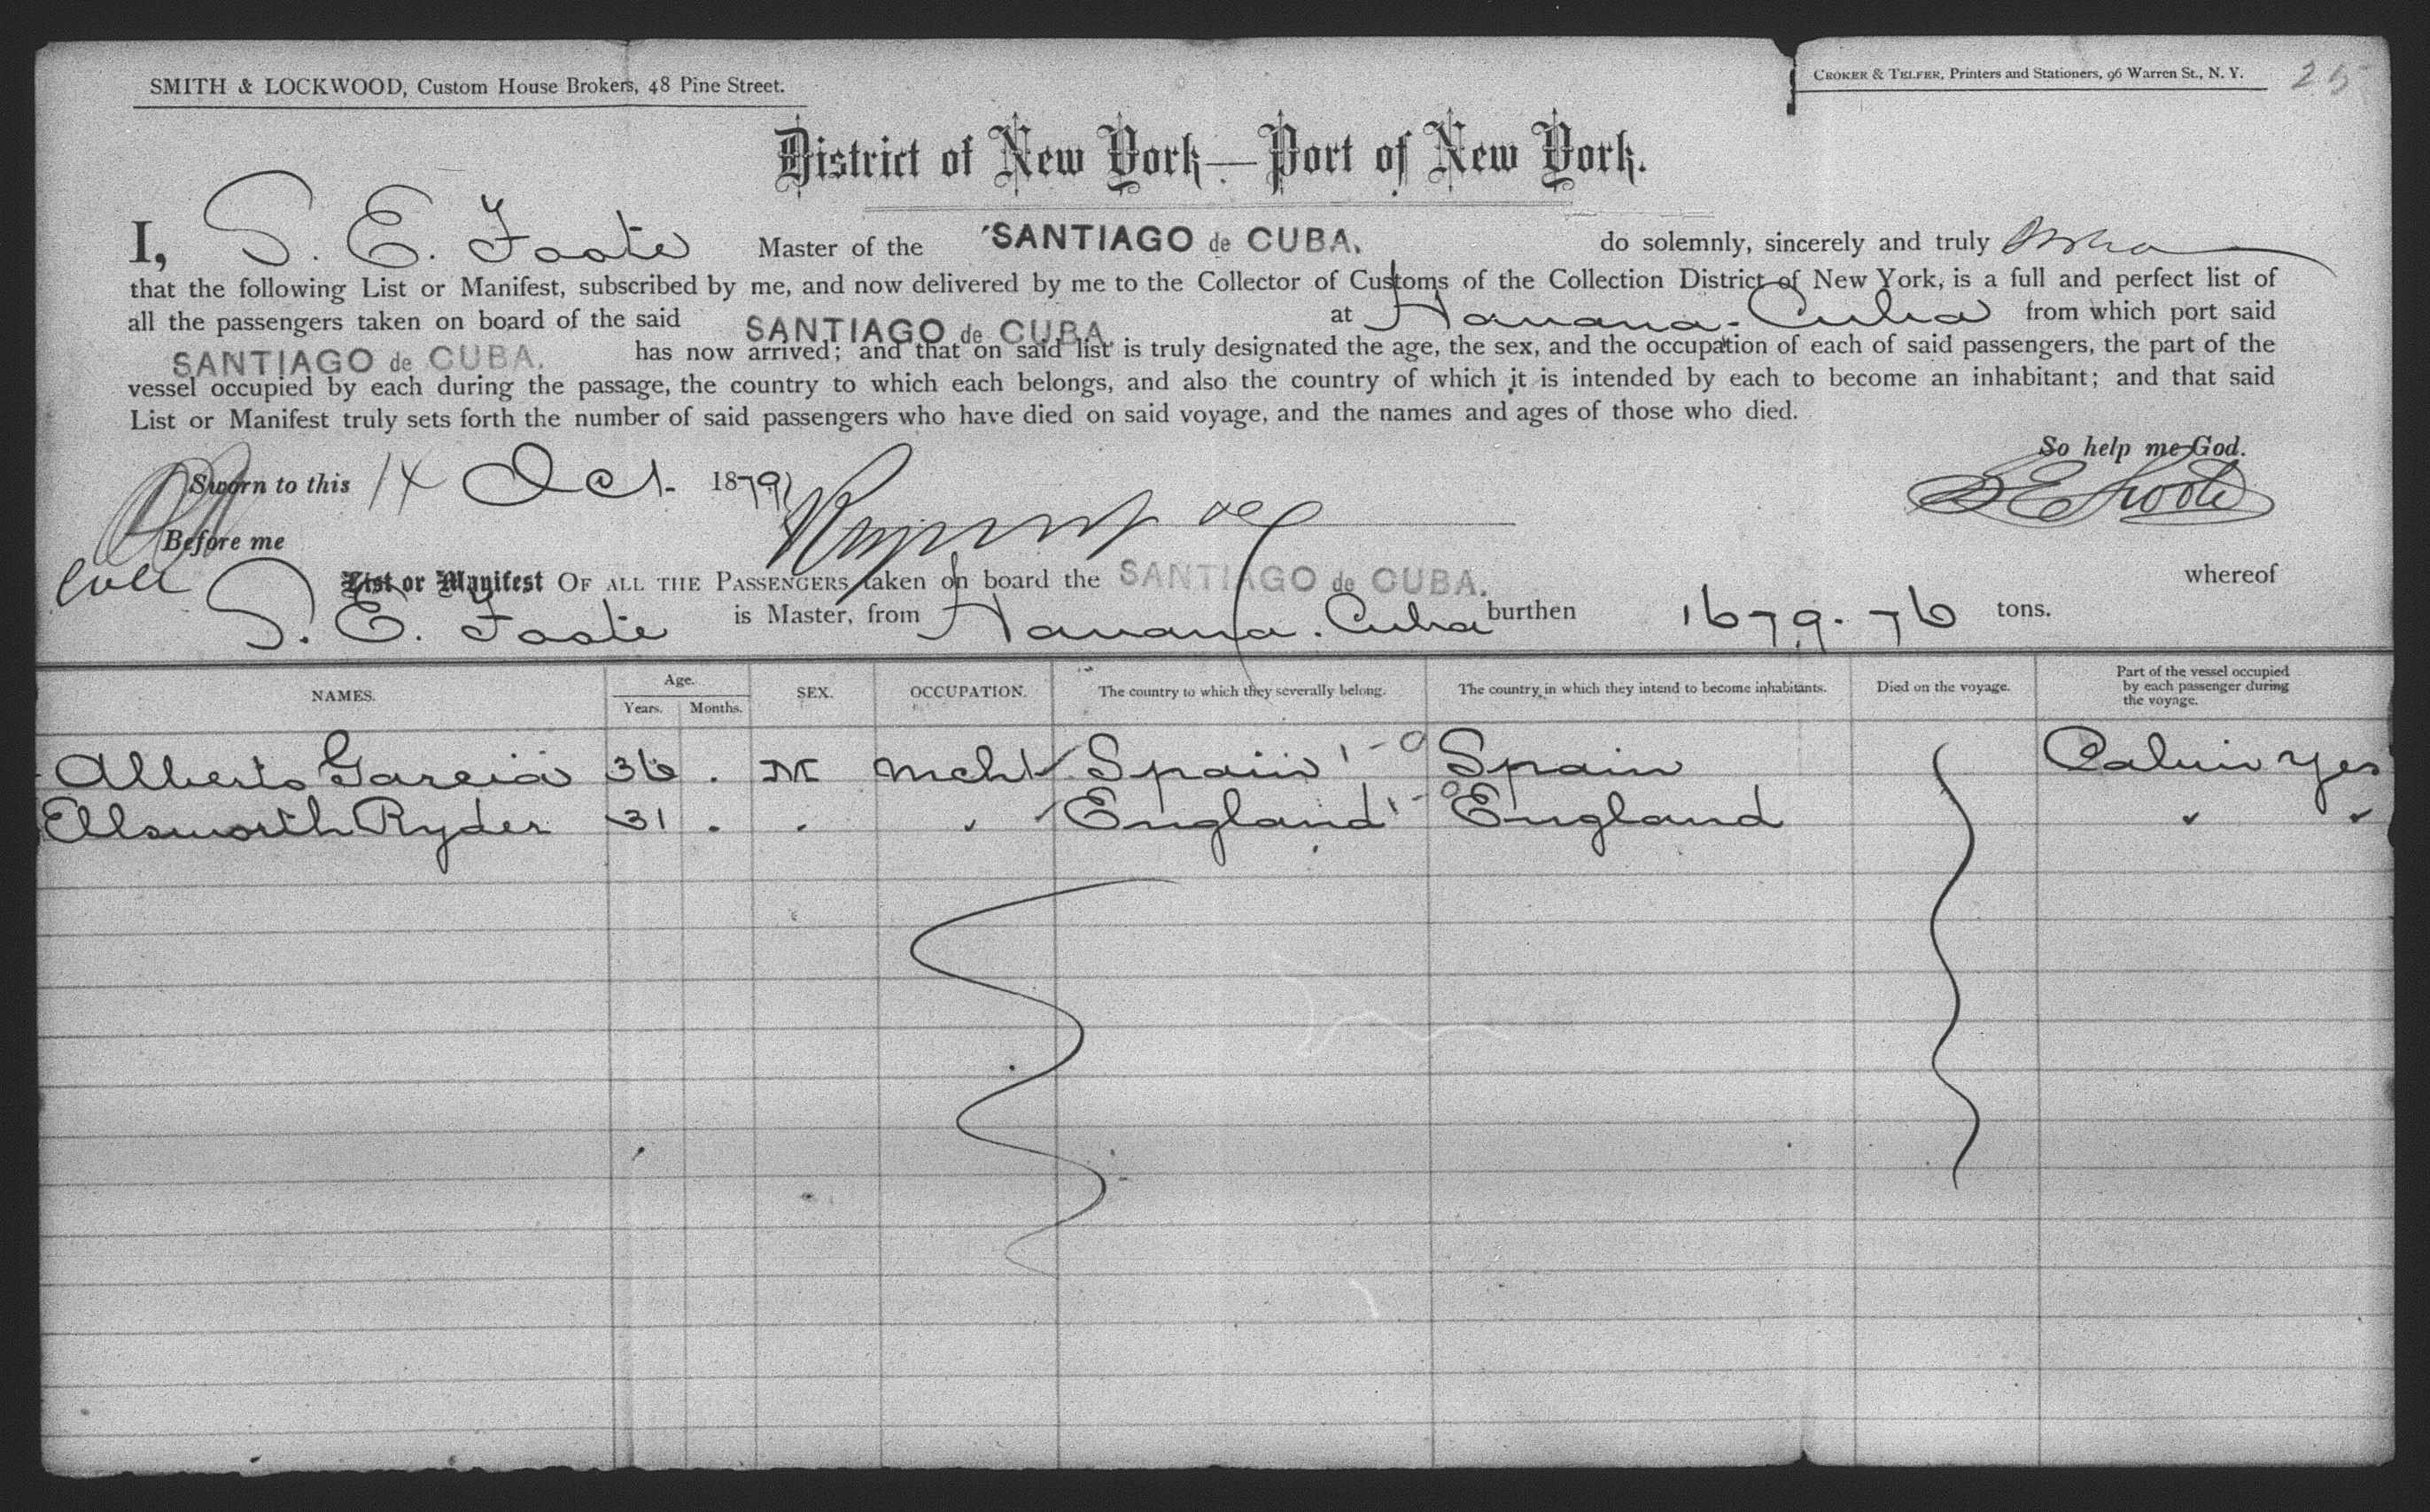 SMITH & LOCKWOOD, Custom House Brokers, 48 Pine Street.
CROKER & TELFER, Printers and Stationers, 96 Warren St., N. Y.
25
District of New York—Port of New York.
I, S. E. Foote Master of the SANTIAGO de CUBA. do solemnly, sincerely and truly
that the following List or Manifest, subscribed by me, and now delivered by me to the Collector of Customs of the Collection District of New York, is a full and perfect list of
all the passengers taken on board of the said SANTIAGO de CUBA. at Havana. Cuba from which port said
SANTIAGO de CUBA. has now arrived; and that on said list is truly designated the age, the sex, and the occupation of each of said passengers, the part of the
vessel occupied by each during the passage, the country to which each belongs, and also the country of which it is intended by each to become an inhabitant; and that said
List or Manifest truly sets forth the number of said passengers who have died on said voyage, and the names and ages of those who died.
So help me God.
Sworn to this 14 Oct. 1879
S E Foote
Before me
List or Manifest OF ALL THE PASSENGERS taken on board the SANTIAGO de CUBA. whereof
S. E. Foote is Master, from Havana. Cuba burthen 1679.76 tons.
NAMES. Age. Years. Months. SEX. OCCUPATION. The country to which they severally belong. The country in which they intend to become inhabitants. Died on the voyage. Part of the vessel occupied by each passenger during the voyage.
Alberto Garcia 36 . M Mcht Spain Spain Cabin Yes
Ellsworth Ryder 31 . " " England England " "